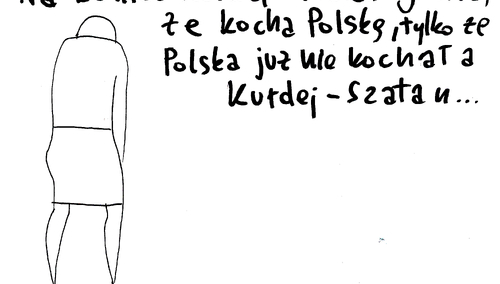 że kocha Polskę, tylko że
Polska już nie kochała
Kurdej-Szatan...